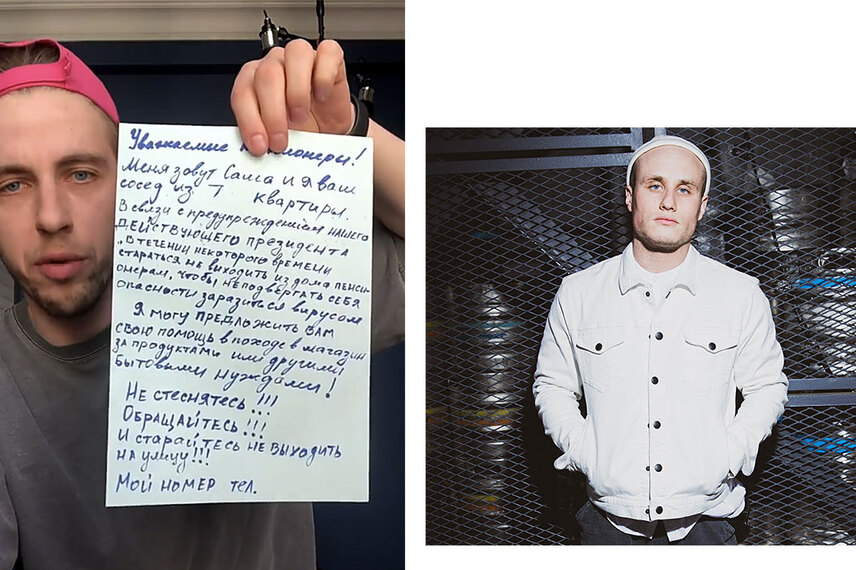 Уважаемые
Меня зовут Салса и я ваш
сосед из 7 квартиры.
В связи с предупреждением нашего
ДЕЙСТВУЮЩЕГО ПРЕЗИДЕНТА
„В ТЕЧЕНИИ НЕКОТОРОГО ВРЕМЕНИ
СТАРАТЬСЯ НЕ ВЫХОДИТЬ ИЗ ДОМА ПЕНСИ-
ОНЕРАМ, ЧТОБЫ НЕПОДВЕРГАТЬ СЕБЯ
ОПАСНОСТИ ЗАРАЗИТЬСЯ ВИРУСОМ
Я МОГУ ПРЕДЛОЖИТЬ ВАМ
СВОЮ ПОМОЩЬ В ПОХОДЕ В МАГАЗИН
ЗА ПРОДУКТАМИ ИЛИ ДРУГИМИ
БЫТОВЫМИ НУЖДАМИ!
НЕ СТЕСНЯТЕСЬ!!!
ОБРАЩАЙТЕСЬ!!!
И СТАРАЙТЕСЬ НЕ ВЫХОДИТЬ
НА УЛИЦУ!!!
МОЙ НОМЕР ТЕЛ.